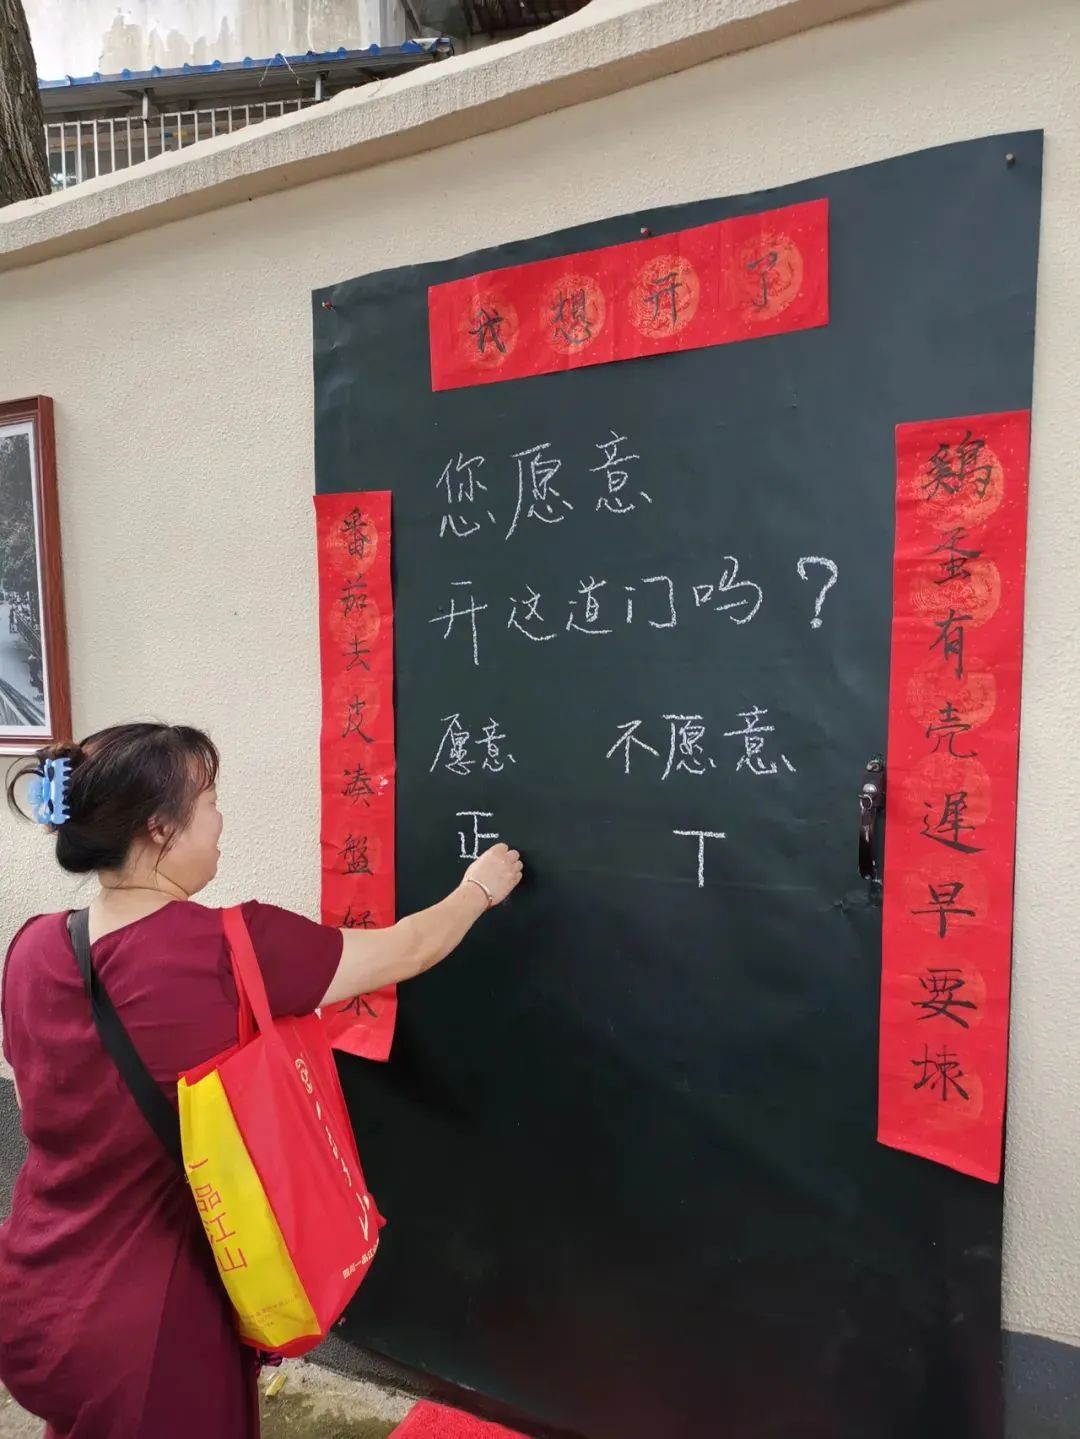 我想开了
鷄蛋有壳遲早要
番茄去皮凑盤
您愿意
开这道门吗？
愿意 不愿意
正 丅
一品江山
四川一品江